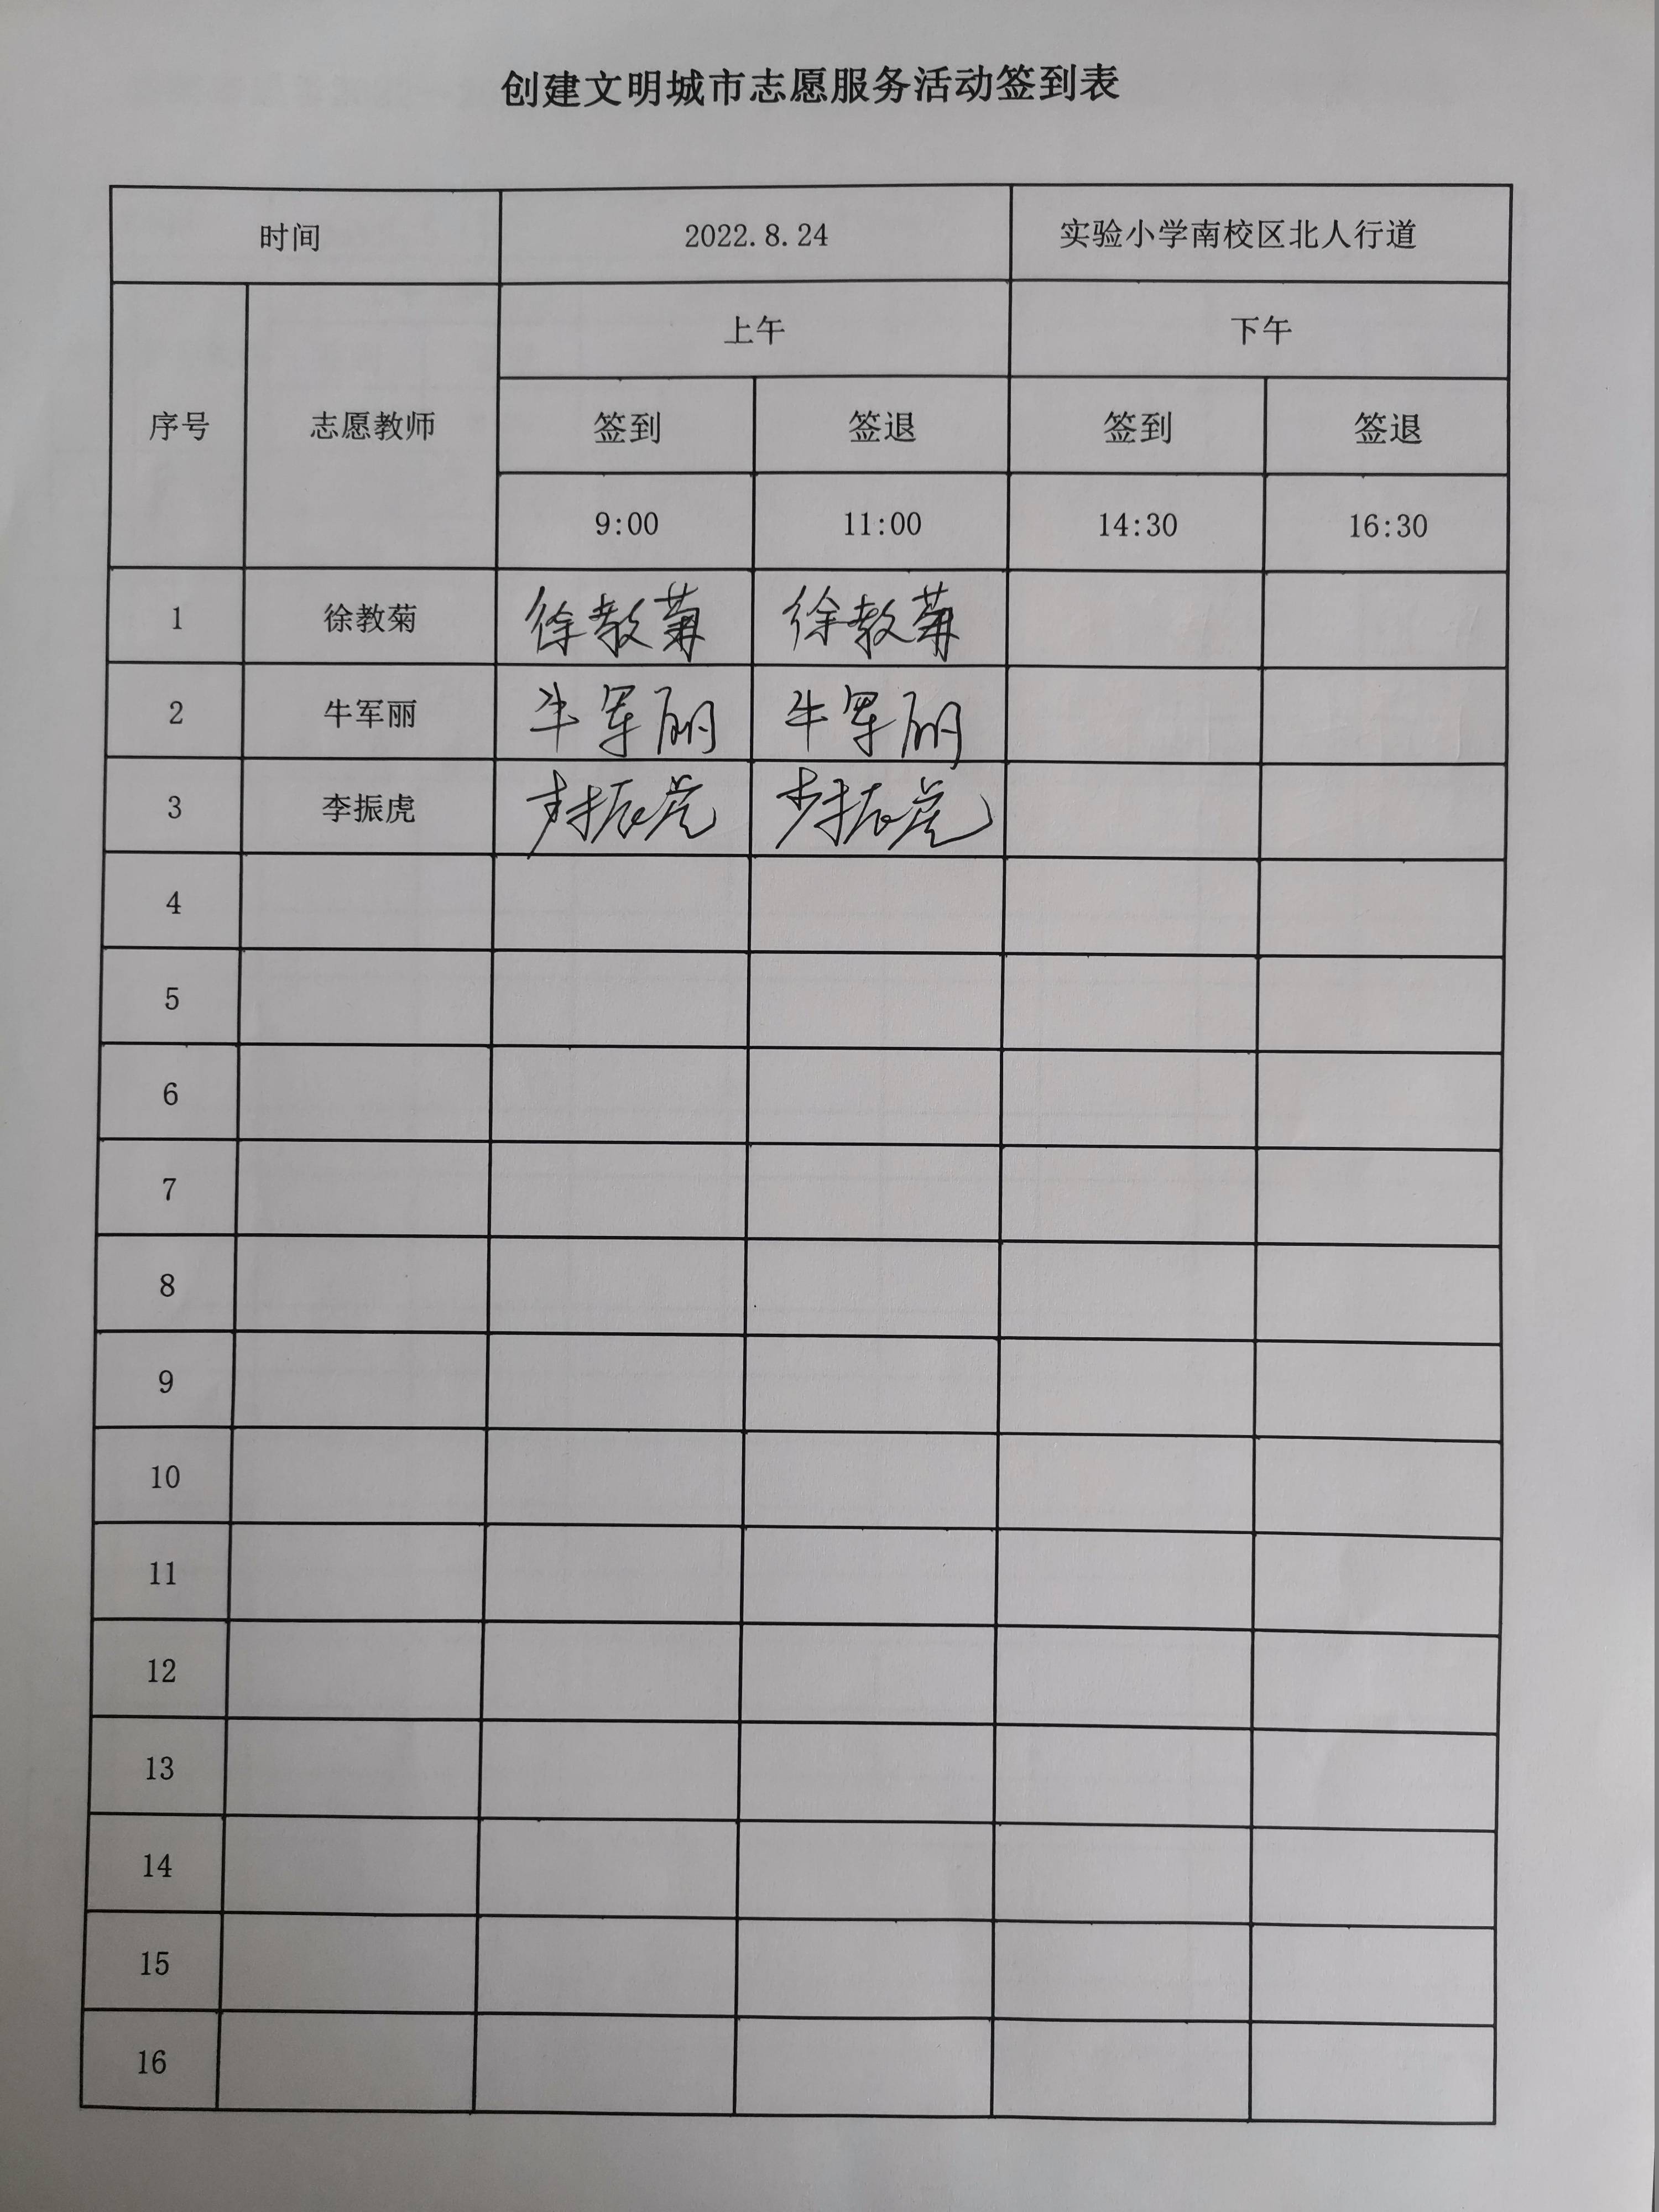 创建文明城市志愿服务活动签到表
时间 2022.8.24 实验小学南校区北人行道
上午 下午
序号 志愿教师 签到 签退 签到 签退
9:00 11:00 14:30 16:30
1 徐教菊 徐教菊 徐教菊
2 牛军丽 牛军丽 牛军丽
3 李振虎 李振虎 李振虎
4
5
6
7
8
9
10
11
12
13
14
15
16